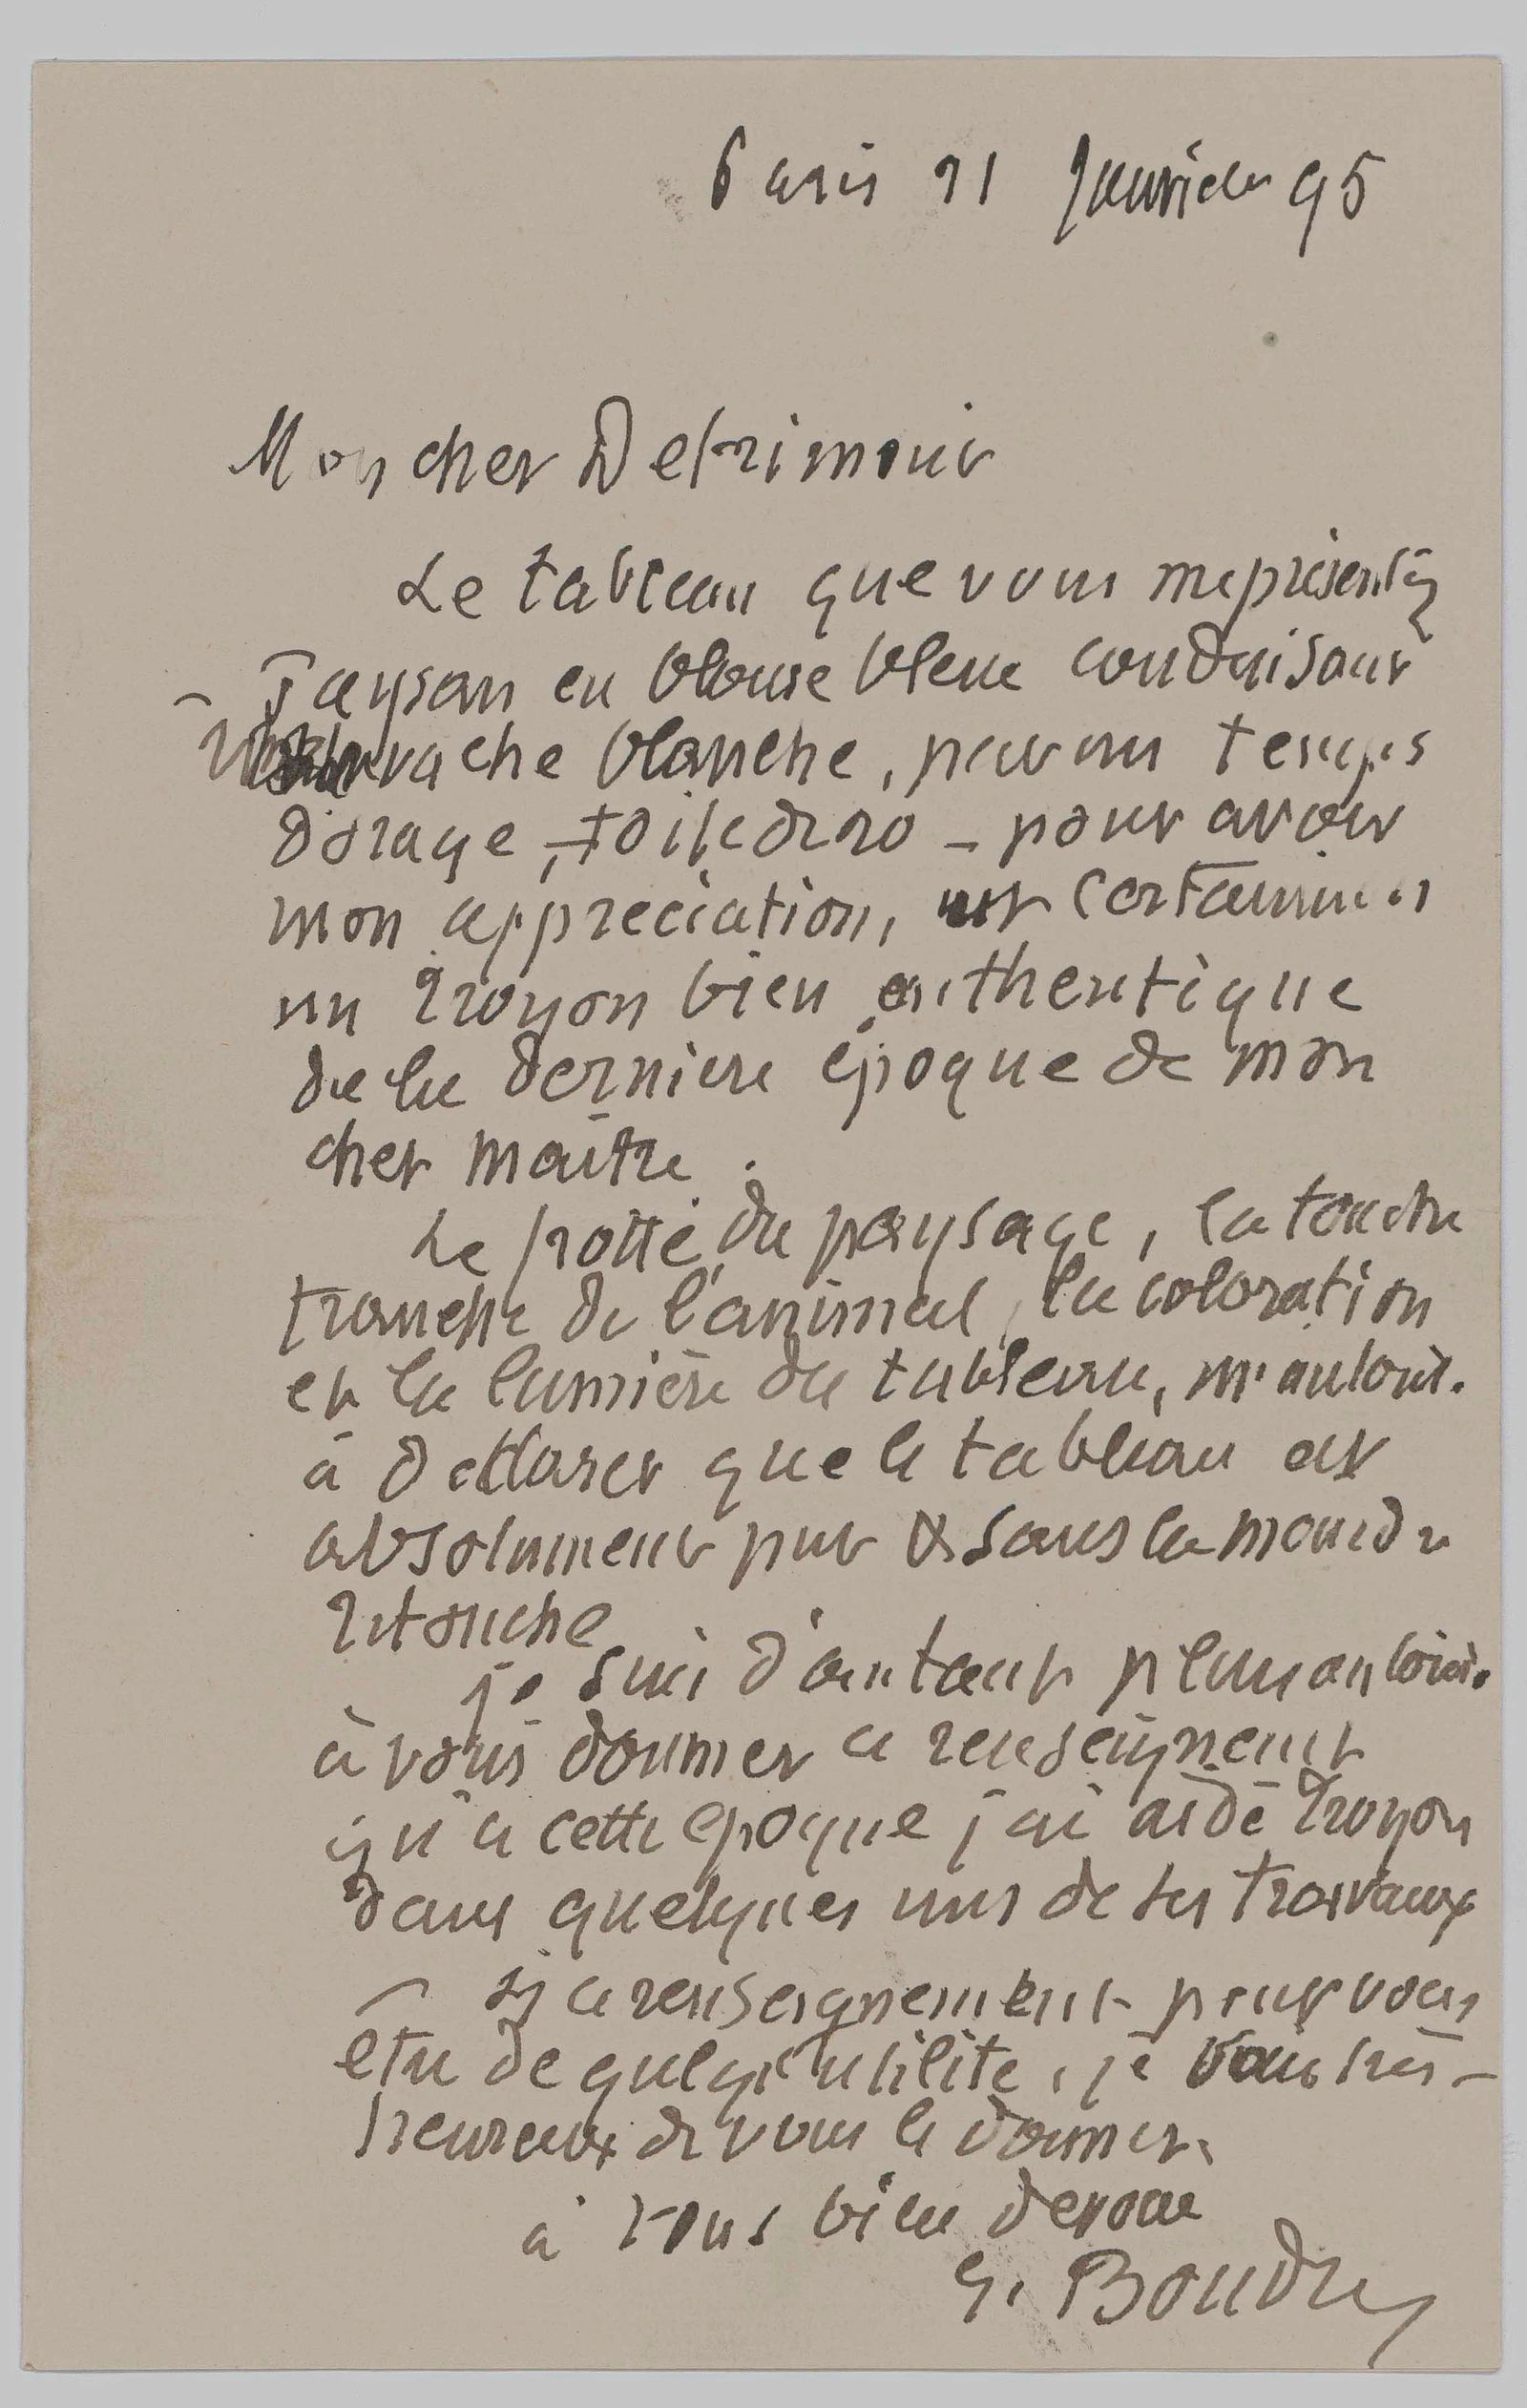 Paris 21 Janvier 95
Mon cher Detrimont
Le tableau que vous me présentez
Paysan en blouse bleue conduisant
une vache blanche, par un temps
d'orage, – toile de 20 – pour avoir
mon appreciation, est certainement
un Troyon bien authentique
de la derniere époque de mon
cher maitre.
Le frotté du paysage, la touche
franche de l'animal, la coloration
et la lumière du tableau, m'autorise
à declarer que le tableau est
absolument pur & sans la moindre
retouche
je suis d'autant plus autorisé
à vous donner ce renseignement
qu'a cette epoque j'ai aidé Troyon
dans quelques uns de ses travaux
– si ce renseignement peut vous
etre de quelqu'utilité, je très –
heureux de vous le donner.
à vous bien devoué
E. Boudin